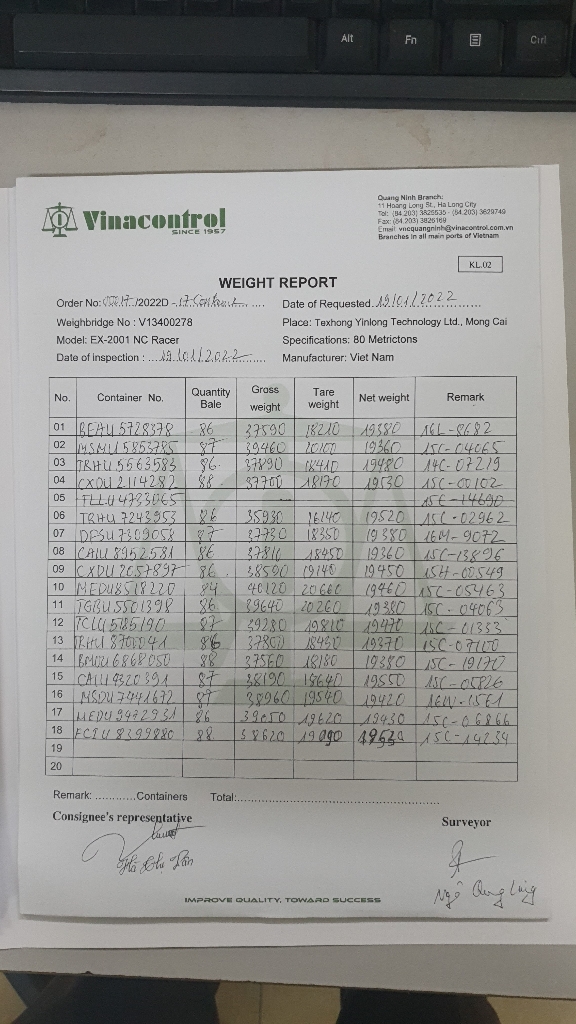 Alt
Fn
Ctrl
Vinacontrol
SINCE 1957
Quang Ninh Branch:
11 Hoang Long St., Ha Long City
Tel: (84.203) 3825535 - (84.203) 3629749
Fax: (84.203) 3826169
Email: vncquangninh@vinacontrol.com.vn
Branches in all main ports of Vietnam
KL.02
WEIGHT REPORT
Order No: /2022D - 17
Date of Requested 19/01/2022
Weighbridge No : V13400278
Place: Texhong Yinlong Technology Ltd., Mong Cai
Model: EX-2001 NC Racer
Specifications: 80 Metrictons
Date of inspection : 19/01/2022
Manufacturer: Viet Nam
No. Container No. Quantity Bale Gross weight Tare weight Net weight Remark
01 BEAU 5728378 86 37590 18210 19380 16L-8682
02 MSMU 5853785 87 39460 20100 19360 15C-04065
03 TRHU 5563583 86 37890 18410 19480 14C-07219
04 CXDU 2114282 88 37700 18170 19530 15C-00102
05 FLLU 4733065 15C-14690
06 TRHU 7243953 86 35930 16140 19520 15C-02962
07 DFSU 7309058 87 37730 18350 19380 16M-9072
08 CAIU 8952581 86 37810 18450 19360 15C-13896
09 CXDU 2057897 86 38590 19140 19450 15H-00549
10 MEDU 8518220 84 40120 20660 19460 15C-05463
11 TGBU 5501398 86 39640 20260 19380 15C-04063
12 TCLU 5185190 87 39280 19810 19470 15C-01333
13 TRHU 8700041 86 37800 18430 19370 15C-07100
14 BMOU 6868050 88 37560 18180 19380 15C-19170
15 CAIU 9320391 87 38190 18640 19550 15C-05826
16 MSDU 7441672 87 38960 19540 19420
17 MEDU 9472931 86 39050 19620 19430 15C-06866
18 FCIU 8399880 88 38620 19090 19530 15C-14234
19
20
Remark: ............Containers Total:
Consignee's representative
Surveyor
IMPROVE QUALITY, TOWARD SUCCESS